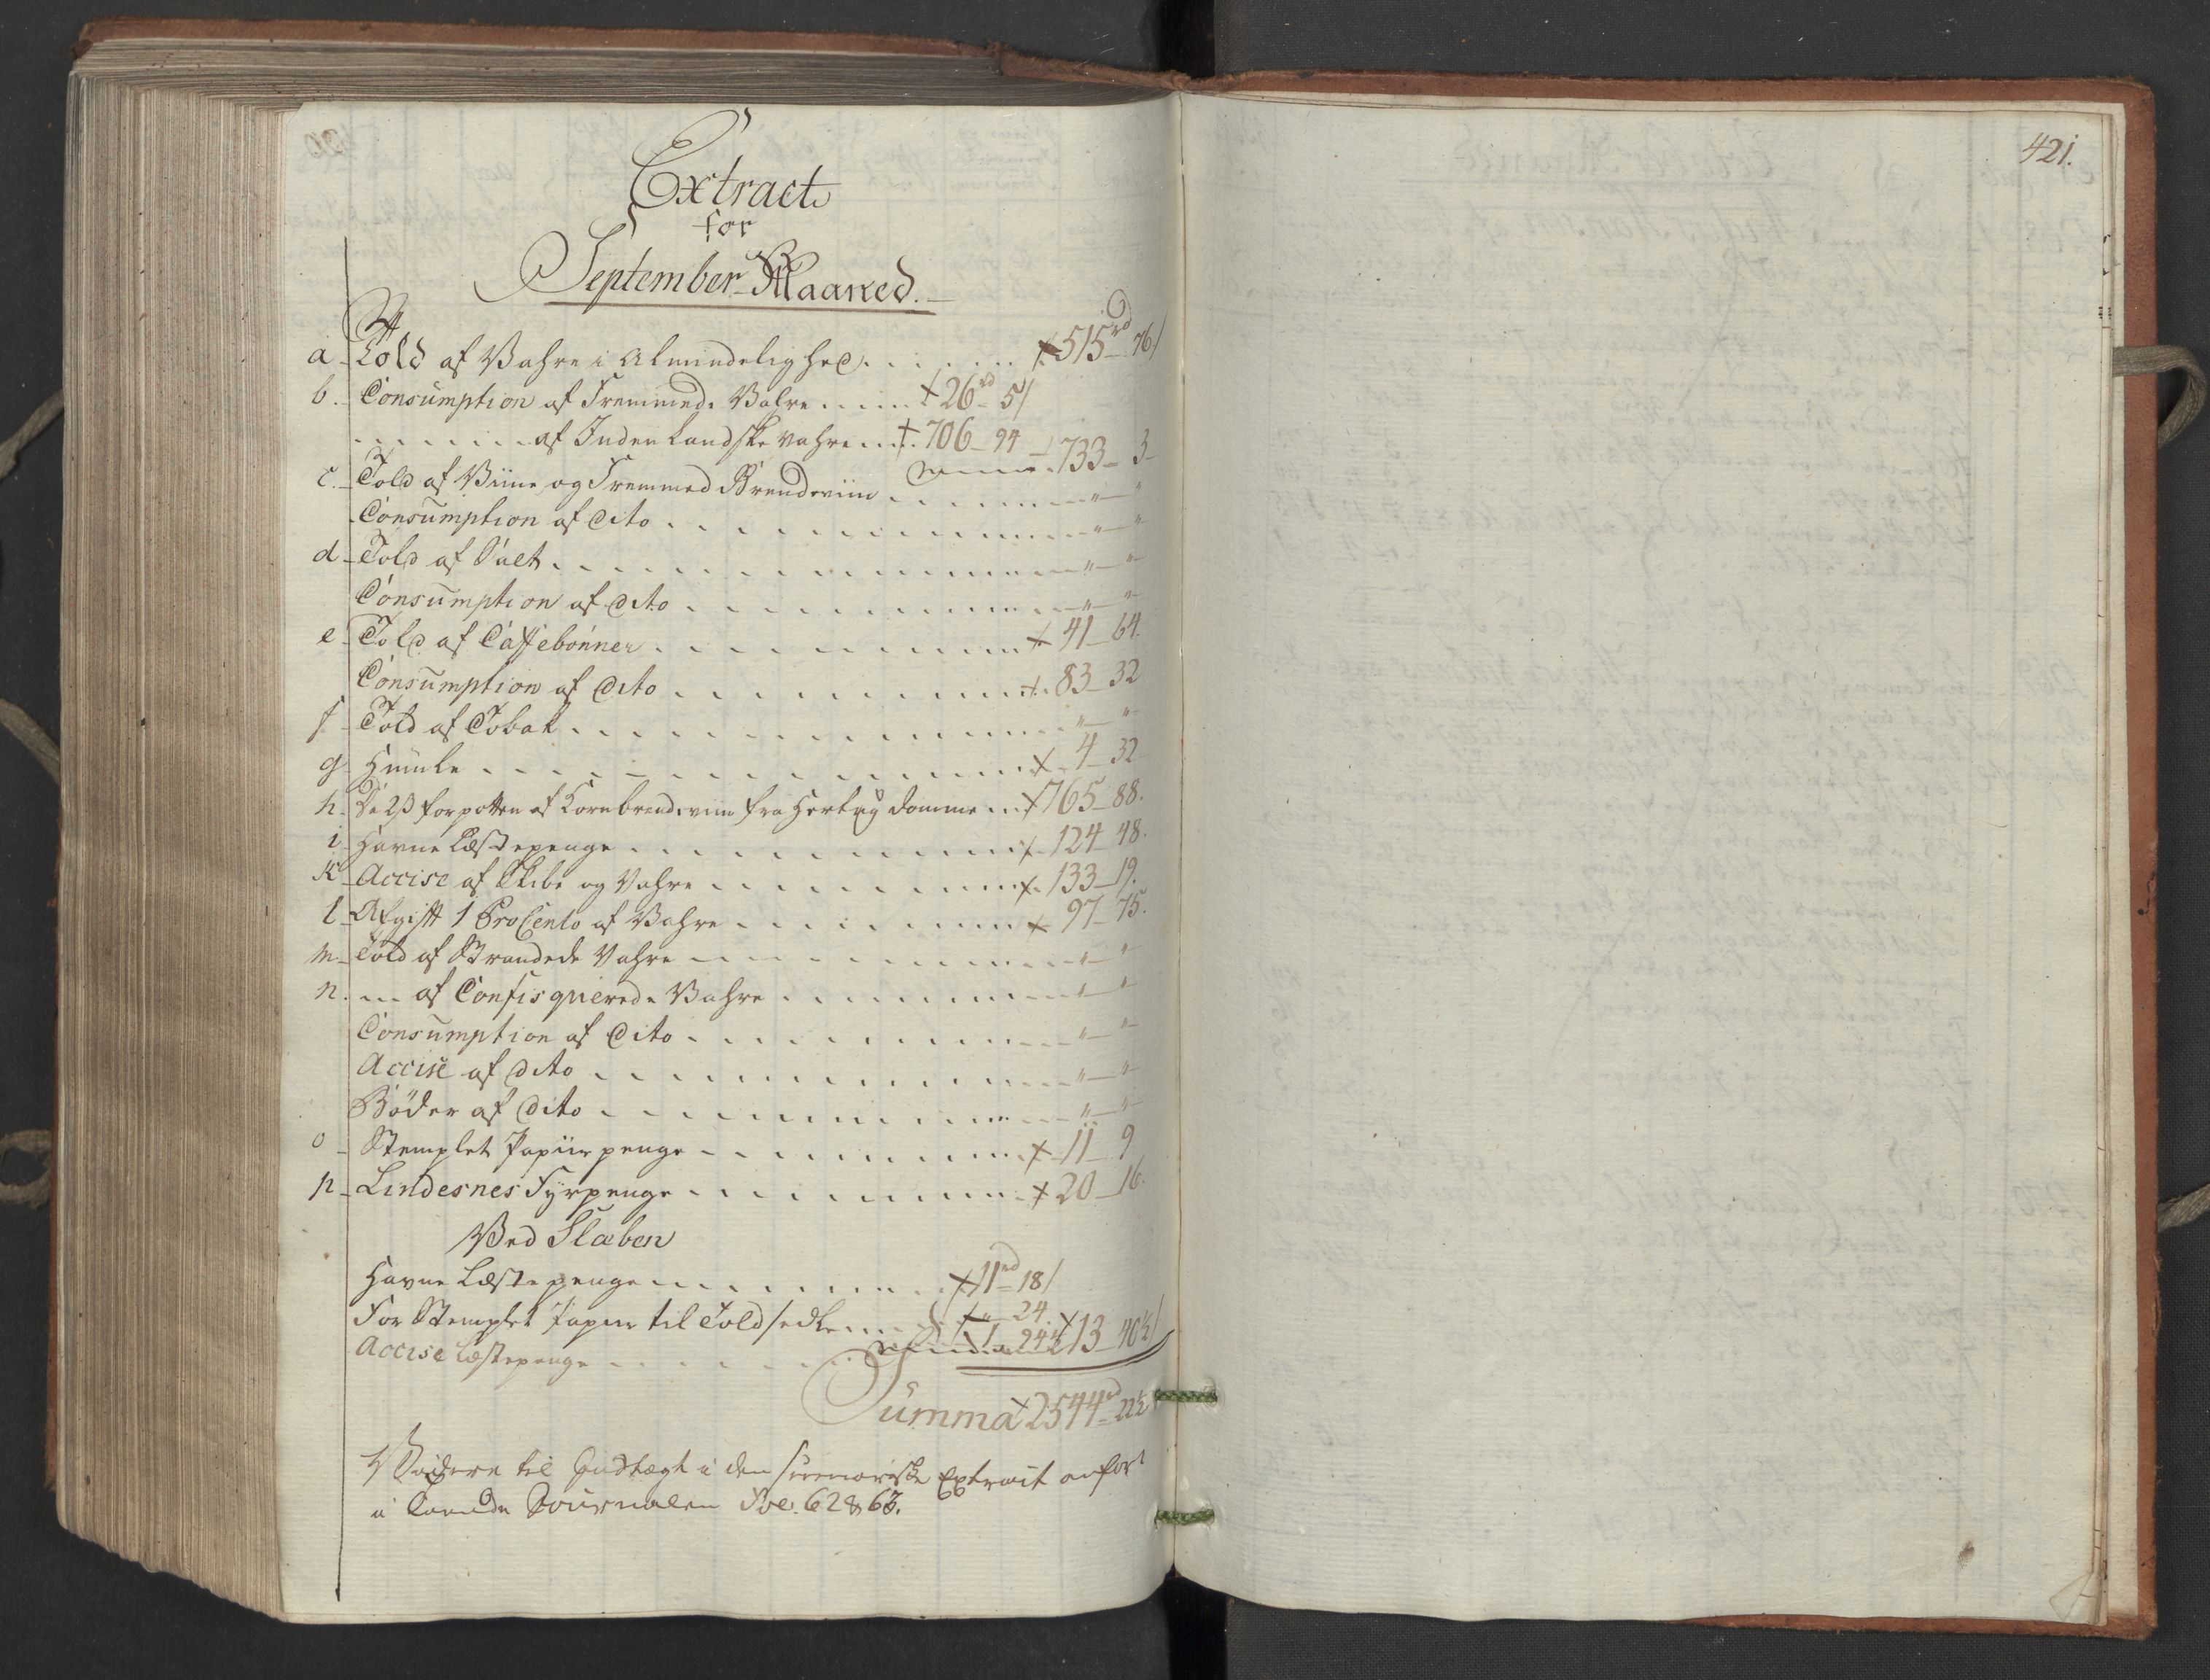 421.
Extract
for
September Maaned.
a Told af Vahre i Almindelighed . . . . . . . . 515rd 76/
b. Consumption af Fremmede Vahre . . . . . 26rd 5/
. . . . . . . af Indenlandske Vahre . . . 706 94 733 3
c. Told af Viine og Fremmed Brendeviin . . . . . . . " "
Consumption af dito . . . . . . . . . . " "
d Told af Salt . . . . . . . . . . . " "
Consumption af dito . . . . . . . . . . " "
e Told af Caffebønner . . . . . . . . . 41 64.
Consumption af dito . . . . . . . . . 83 32
f Told af Tobak . . . . . . . . . . . " "
g Humle . . . . . . . . . . . 4 32
h De 2 ß for potten af Kornbrendeviin fra Hertugdomme . . . 765 88.
i Havne Læstepenge . . . . . . . . . . 124 48.
K Accise af Skibe og Vahre . . . . . . . . 133 19.
l Afgift 1 ProCento af Vahre . . . . . . . . 97 75.
m Told af Strandede Vahre . . . . . . . . " "
n. - - af Confisquerede Vahre . . . . . . . . " "
Consumption af dito . . . . . . . . . . " "
Accise af dito . . . . . . . . . . " "
Bøder af dito . . . . . . . . . . " "
o Stemplet Papiir penge . . . . . . . . . 11 9
p Lindesnes Fyrpenge . . . . . . . . . 20 16.
Ved Slæben
Havne Læstepenge . . . . . . . . . 11rd 18/
For Stemplet Papiir til Toldsedler . . . . " 24.
Accise Læstepenge . . . . . . . 1 94½ 13 40½/
Summa 2544rd 22½
Videre til Indtægt i den summariske Extract anført
i Journalen Fol. 62 & 63.